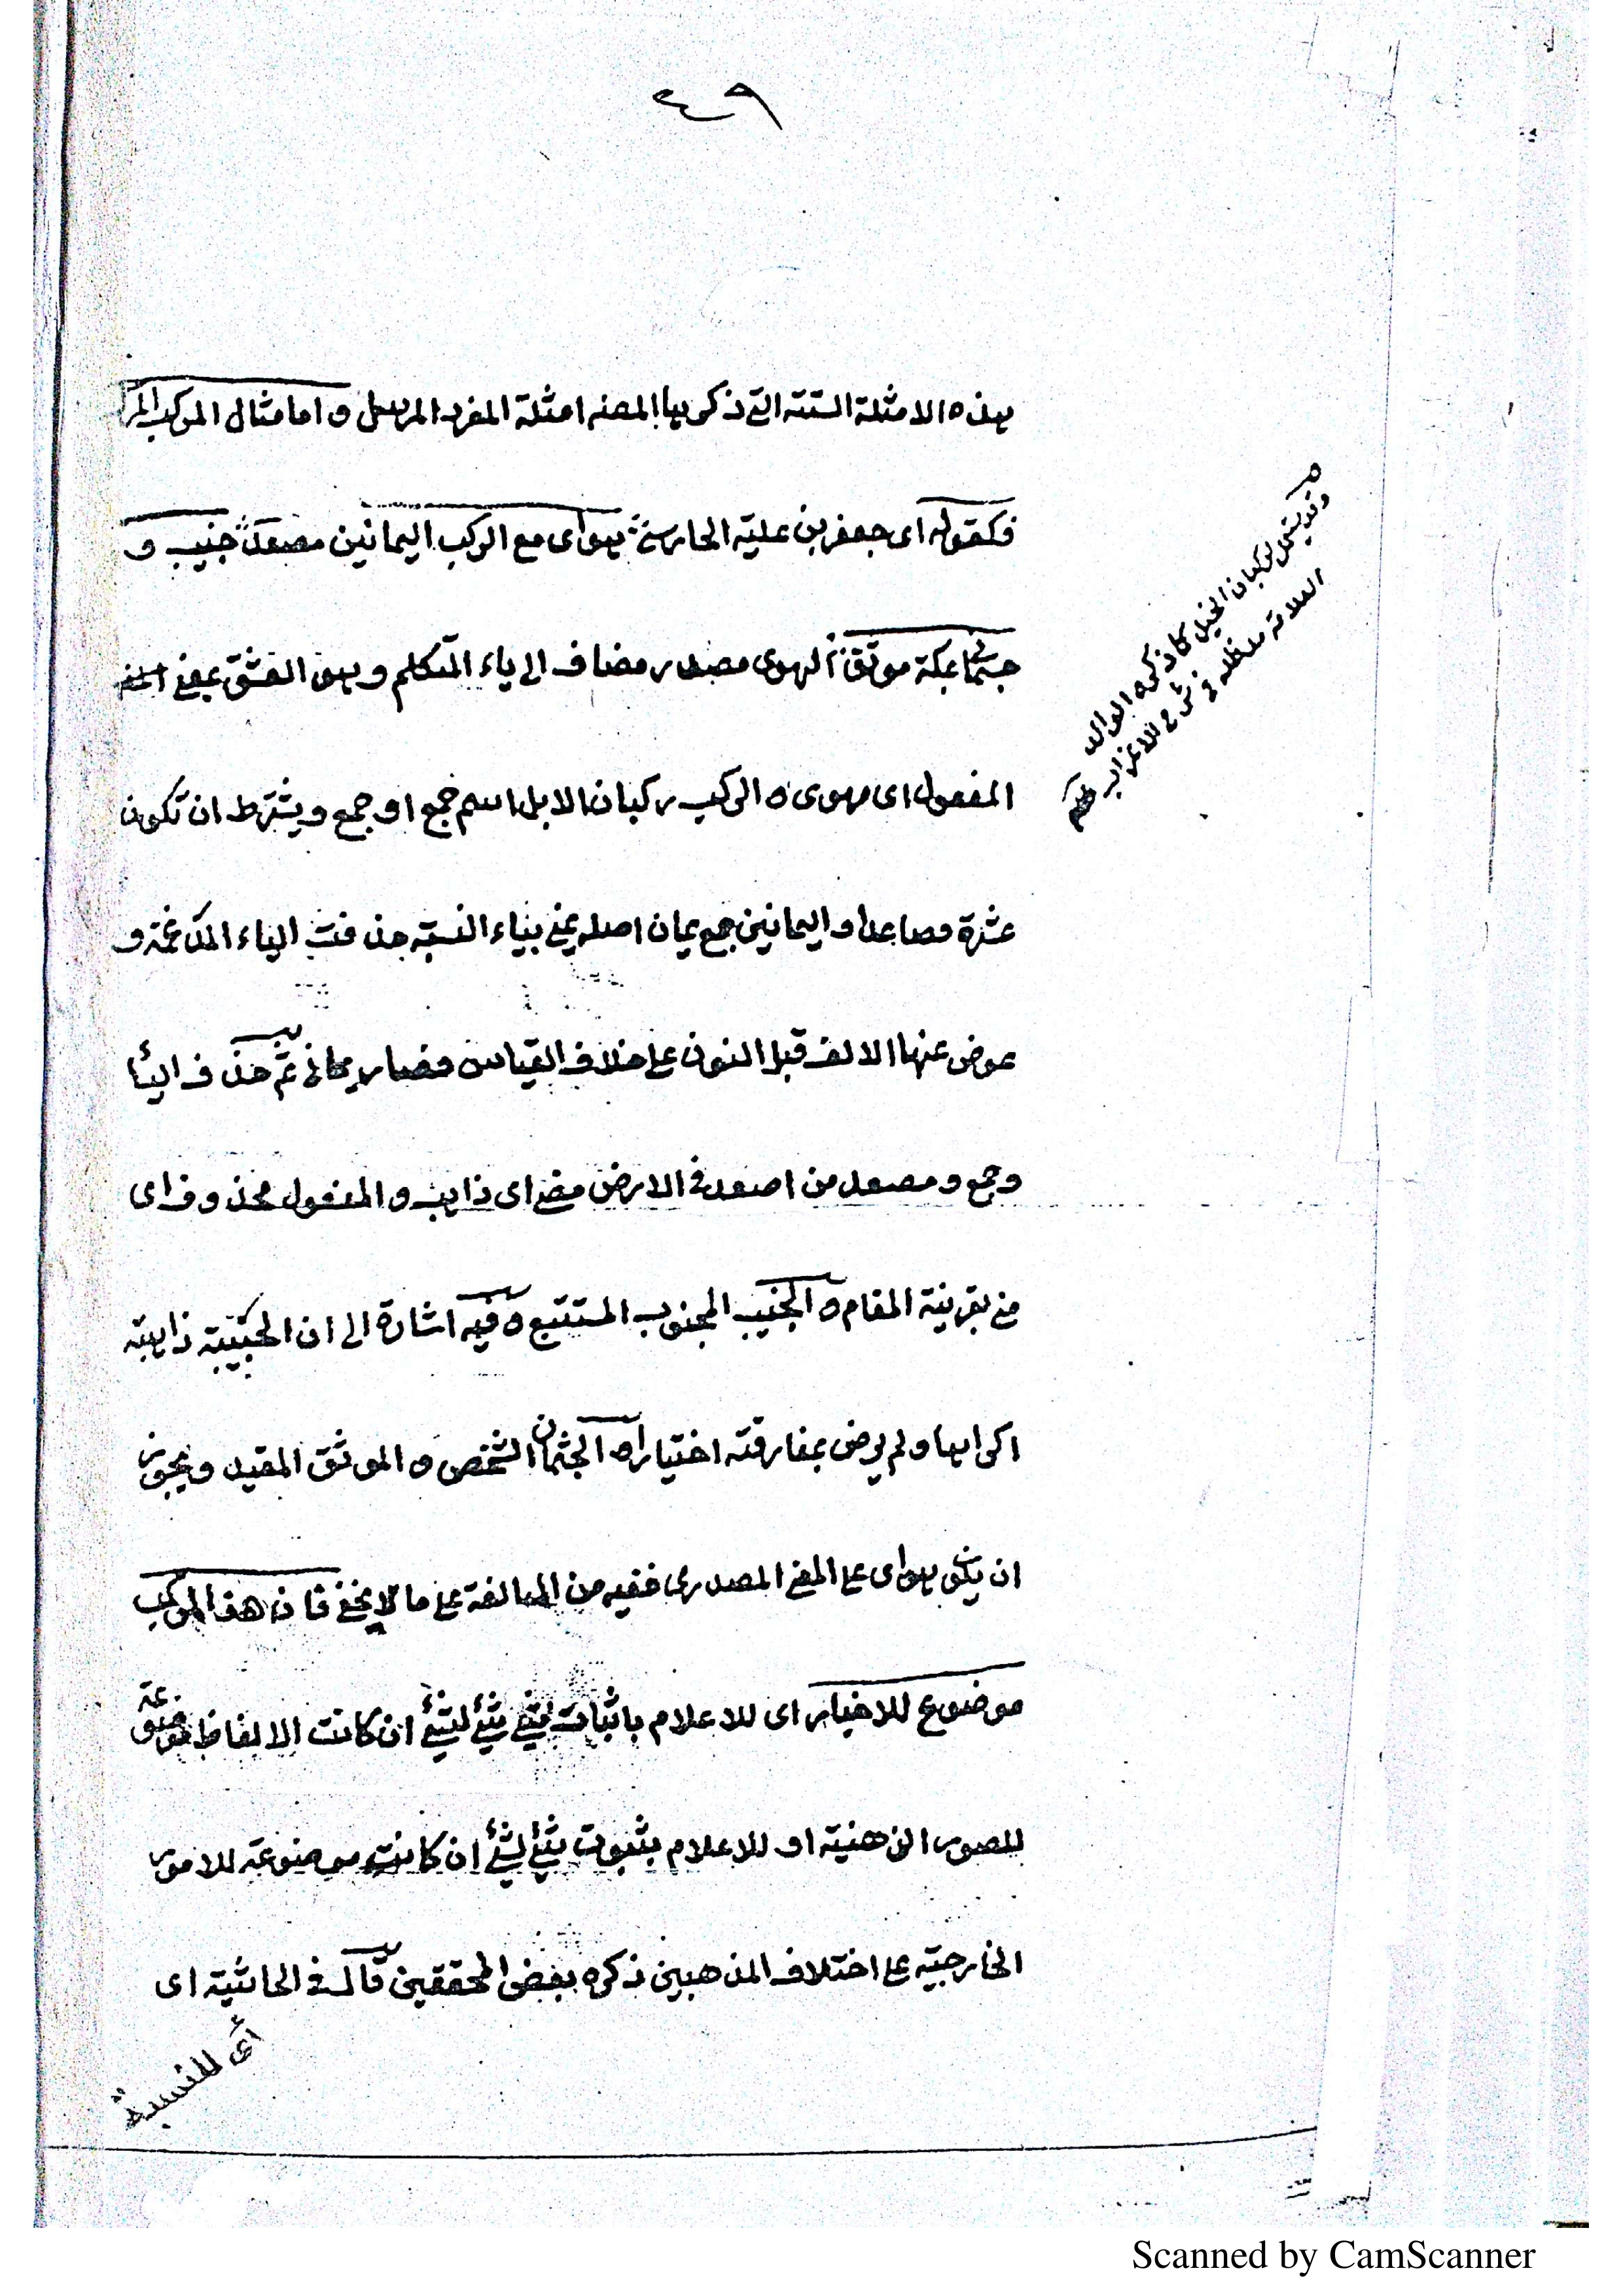 ٤٩
هذه الامثلة الستة التي ذكرها المصنف امثلة المفرد المرسل واما مثال المركب المر
فكقوله اى جعفر بن علية الحارثى هواى مع الركب اليمانين مصعد جنيب و
جثمانى بمكة موثق الهوى مصدر مضاف الى ياء المتكلم وهو العشق بمعنى اسم
المفعول اى مهوى ه الركب ركبان الابل اسم جمع او جمع ويشترط ان تكون
عشرة فصاعدا واليمانين جمع يمان اصله يمنى بياء النسبة حذفت الياء المدغمة و
عوض عنها الالف قبل النون على خلاف القياس فصار يمانى ثم حذف الياء
وجمع ومصعد من اصعد فى الارض مضى اى ذاهب والمفعول محذوف اى
منى بقرينة المقام ه الجنيب المجنوب المستتبع ه فيه اشارة الى ان الحبيبة ذاهبة
اكراها ولم يرض بمفارقته اختيارا ه الجثمان الشخص والموثق المقيد ويجوز
ان يكون هواى على المعنى المصدرى ففيه من المبالغة على ما لا يخفى فان هذا المركب
موضوع للاخبار اى للاعلام باثبات شئ لشئ ان كانت الالفاظ موضوعة
للصور الذهنية او للاعلام بثبوت شئ لشئ ان كانت موضوعة للامور
الخارجية على اختلاف المذهبين ذكره بعض المحققين قال فى الحاشية اى
اى للنسبة
وقد يستعمل لركبان الخيل كما ذكره الوالد
العلامة مد ظله فى شرح للاعراب
Scanned by CamScanner